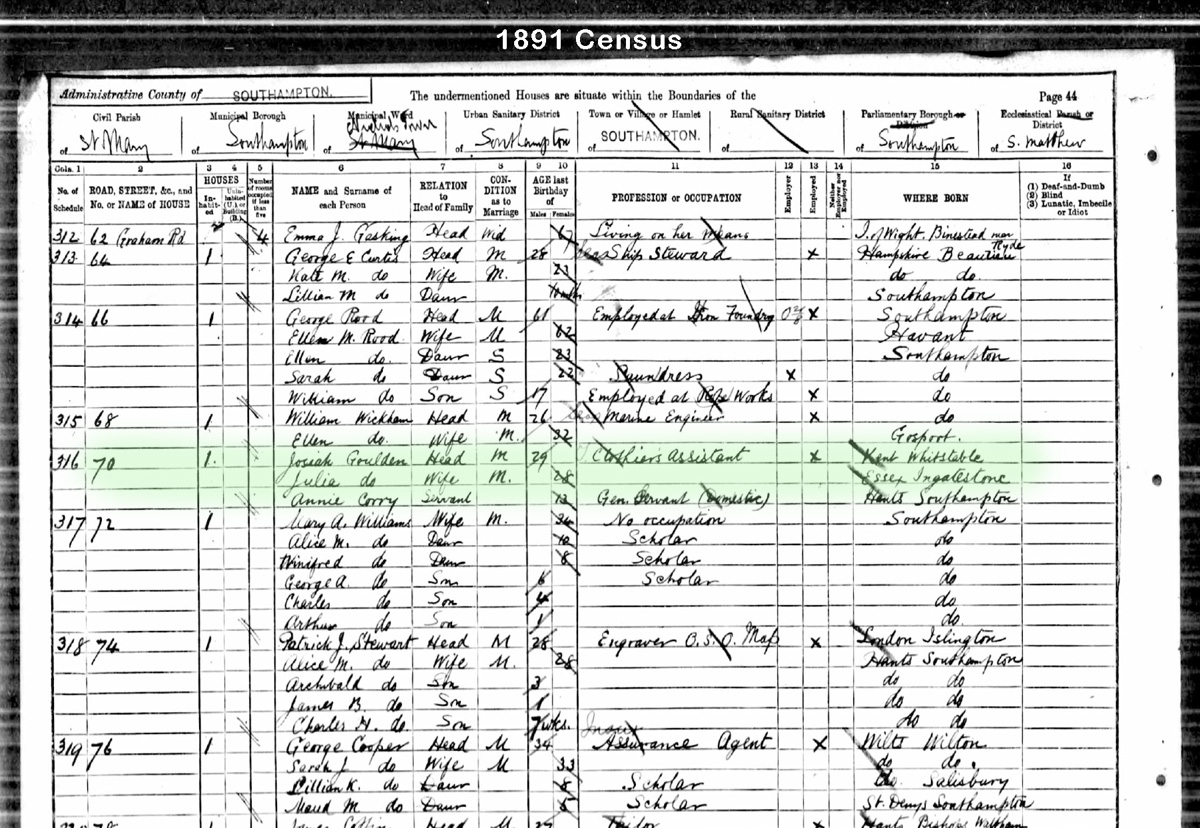 1891 Census
Administrative County of SOUTHAMPTON. The undermentioned Houses are situate within the Boundaries of the Page 44
Civil Parish Municipal Borough Municipal Ward Urban Sanitary District Town or Village or Hamlet Rural Sanitary District Parliamentary Borough or Division Ecclesiastical Parish or District
of St Mary of Southampton of St Mary of Southampton of SOUTHAMPTON. of of Southampton of S. Matthew
Cols. 1 2 3 4 5 6 7 8 9 10 11 12 13 14 15 16
No. of Schedule ROAD, STREET, &c., and No. or NAME of HOUSE HOUSES Inhabited Uninhabited (U.) or Building (B.) Number of rooms occupied if less than five NAME and Surname of each Person RELATION to Head of Family CONDITION as to Marriage AGE last Birthday of Males Females PROFESSION or OCCUPATION Employer Employed Neither Employer nor Employed WHERE BORN If (1) Deaf-and-Dumb (2) Blind (3) Lunatic, Imbecile or Idiot
312 62 Graham Rd 4 Emma J. Gosking Head Wid 67 Living on her Means I. of Wight. Binestead near Ryde
313 64 1 George E Curtis Head M 28 Ship Steward x Hampshire Beaulieu
Kate M. do Wife M. 23 do do.
Lillian M do Daur Southampton
314 66 1 George Rood Head M 61 Employed at Iron Foundry x Southampton
Ellen M. Rood Wife M 62 Havant
Ellen do. Daur S 23 Southampton
Sarah do Daur S 22 Laundress x do
William do Son S 17 Employed at Works x do
315 68 1 William Wickham Head M 26 Marine Engineer x do
Ellen do. Wife M. 32 Gosport.
316 70 1. Josiah Goulden Head M 29 Clothiers Assistant x Kent Whitstable
Julia do Wife M. 28 Essex Ingatestone
Annie Corry Servant 13 Gen. Servant (Domestic) Hants Southampton
317 72 1 Mary A. Williams Wife M. 34 No occupation Southampton
Alice M. do Daur 10 Scholar do
Winifred do Daur 8 Scholar do
George A. do Son 6 Scholar do
Charles do Son 4 do
Arthur do Son 1 do
318 74 1 Patrick J. Stewart Head M 28 Engraver O.S.O. Map x London Islington
Alice M. do Wife M. 28 Hants Southampton
Archibald do Son 3 do do
James B. do Son 1 do do
Charles H. do. Son 7 wks. do do
319 76 1 George Cooper Head M 34 Assurance Agent x Wilts Wilton
Sarah J do Wife M 33 do do.
Lillian K. do Daur 8 Scholar do. Salisbury
Maud M. do Daur 5 Scholar St. Denys Southampton
78 Head M 27 Tailor x Hants Bishops Waltham